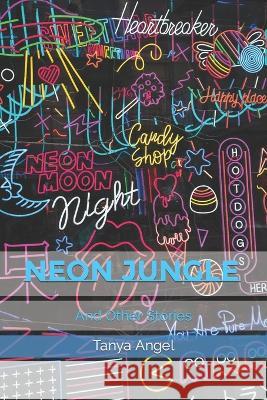 Heartbreaker
Happy place
Candy
Shop
NEON
MOON
Night
HOTDOGS
HERE
果
NEON JUNGLE
And Other Stories
You Are Pure M
Tanya Angel